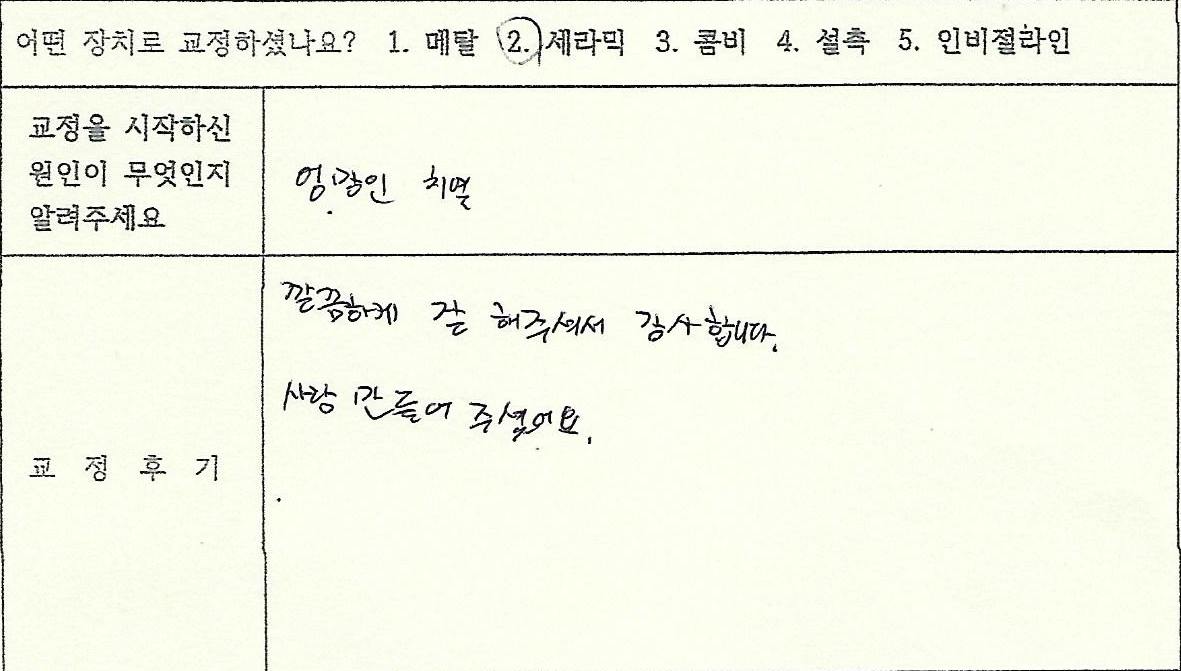 어떤 장치로 교정하셨나요? 1. 메탈 2. 세라믹 3. 콤비 4. 설측 5. 인비절라인
교정을 시작하신
원인이 무엇인지
알려주세요
엉망인 치열
깔끔하게 잘 해주셔서 감사합니다.
사람 만들어 주셨어요.
교 정 후 기